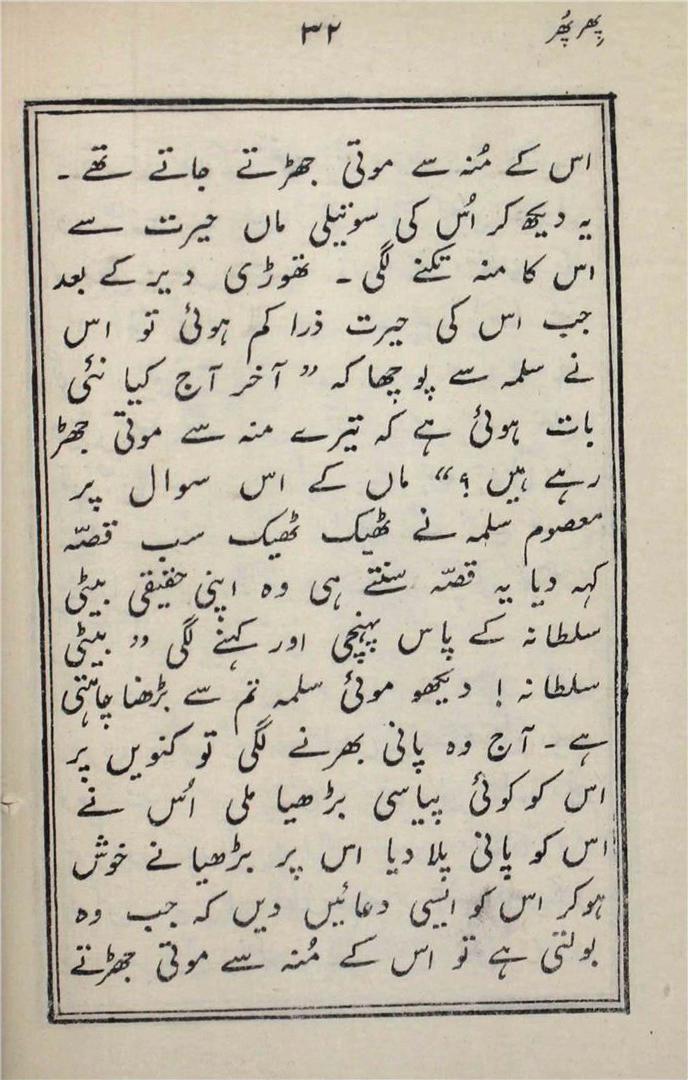 پھر پھر
۳۲
اس کے مُنہ سے موتی جھڑتے جاتے تھے ۔
یہ دیکھ کر اُس کی سوتیلی ماں حیرت سے
اس کا منہ تکنے لگی ۔ تھوڑی دیر کے بعد
جب اس کی حیرت ذرا کم ہوئی تو اس
نے سلمہ سے پوچھا کہ ” آخر آج کیا نئی
بات ہوئی ہے کہ تیرے منہ سے موتی جھڑ
رہے ہیں ؟“ ماں کے اس سوال پر
معصوم سلمہ نے ٹھیک ٹھیک سب قصّہ
کہہ دیا یہ قصّہ سنتے ہی وہ اپنی حقیقی بیٹی
سلطانہ کے پاس پہنچی اور کہنے لگی ” بیٹی
سلطانہ ! دیکھو موئی سلمہ تم سے بڑھنا چاہتی
ہے ۔ آج وہ پانی بھرنے لگی تو کنویں پر
اس کو کوئی پیاسی بڑھیا ملی اُس نے
اس کو پانی پلا دیا اس پر بڑھیا نے خوش
ہوکر اس کو ایسی دعائیں دیں کہ جب وہ
بولتی ہے تو اس کے مُنہ سے موتی جھڑتے